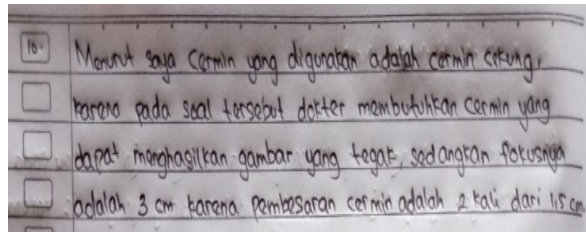 10. Menurut saya cermin yang digunakan adalah cermin cekung,
karena pada soal tersebut dokter membutuhkan cermin yang
dapat menghasilkan gambar yang tegak, sedangkan fokusnya
adalah 3 cm karena pembesaran cermin adalah 2 kali dari 1,5 cm